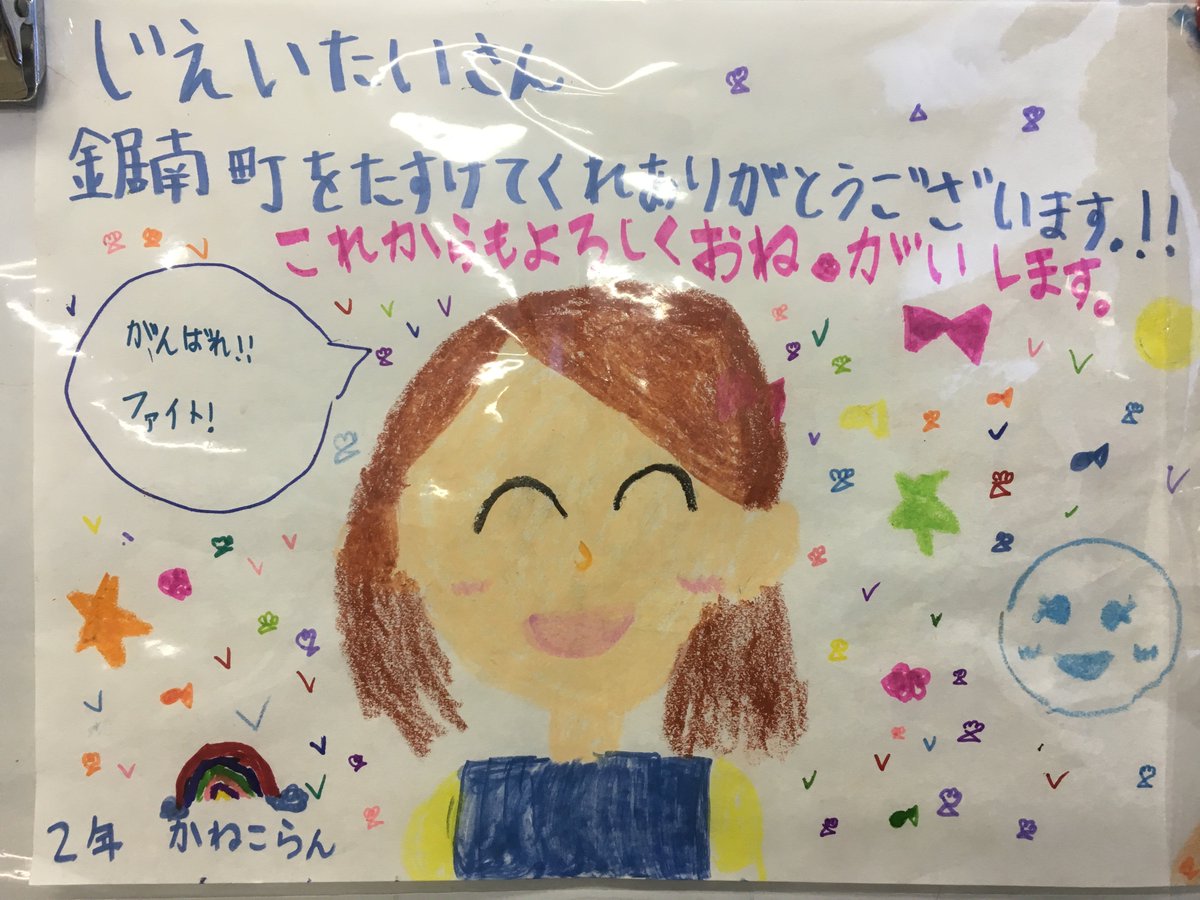 じえいたいさん
鋸南町をたすけてくれありがとうございます.!!
これからもよろしくおね。がいします。
がんばれ!!
ファイト!
2年 かねこらん